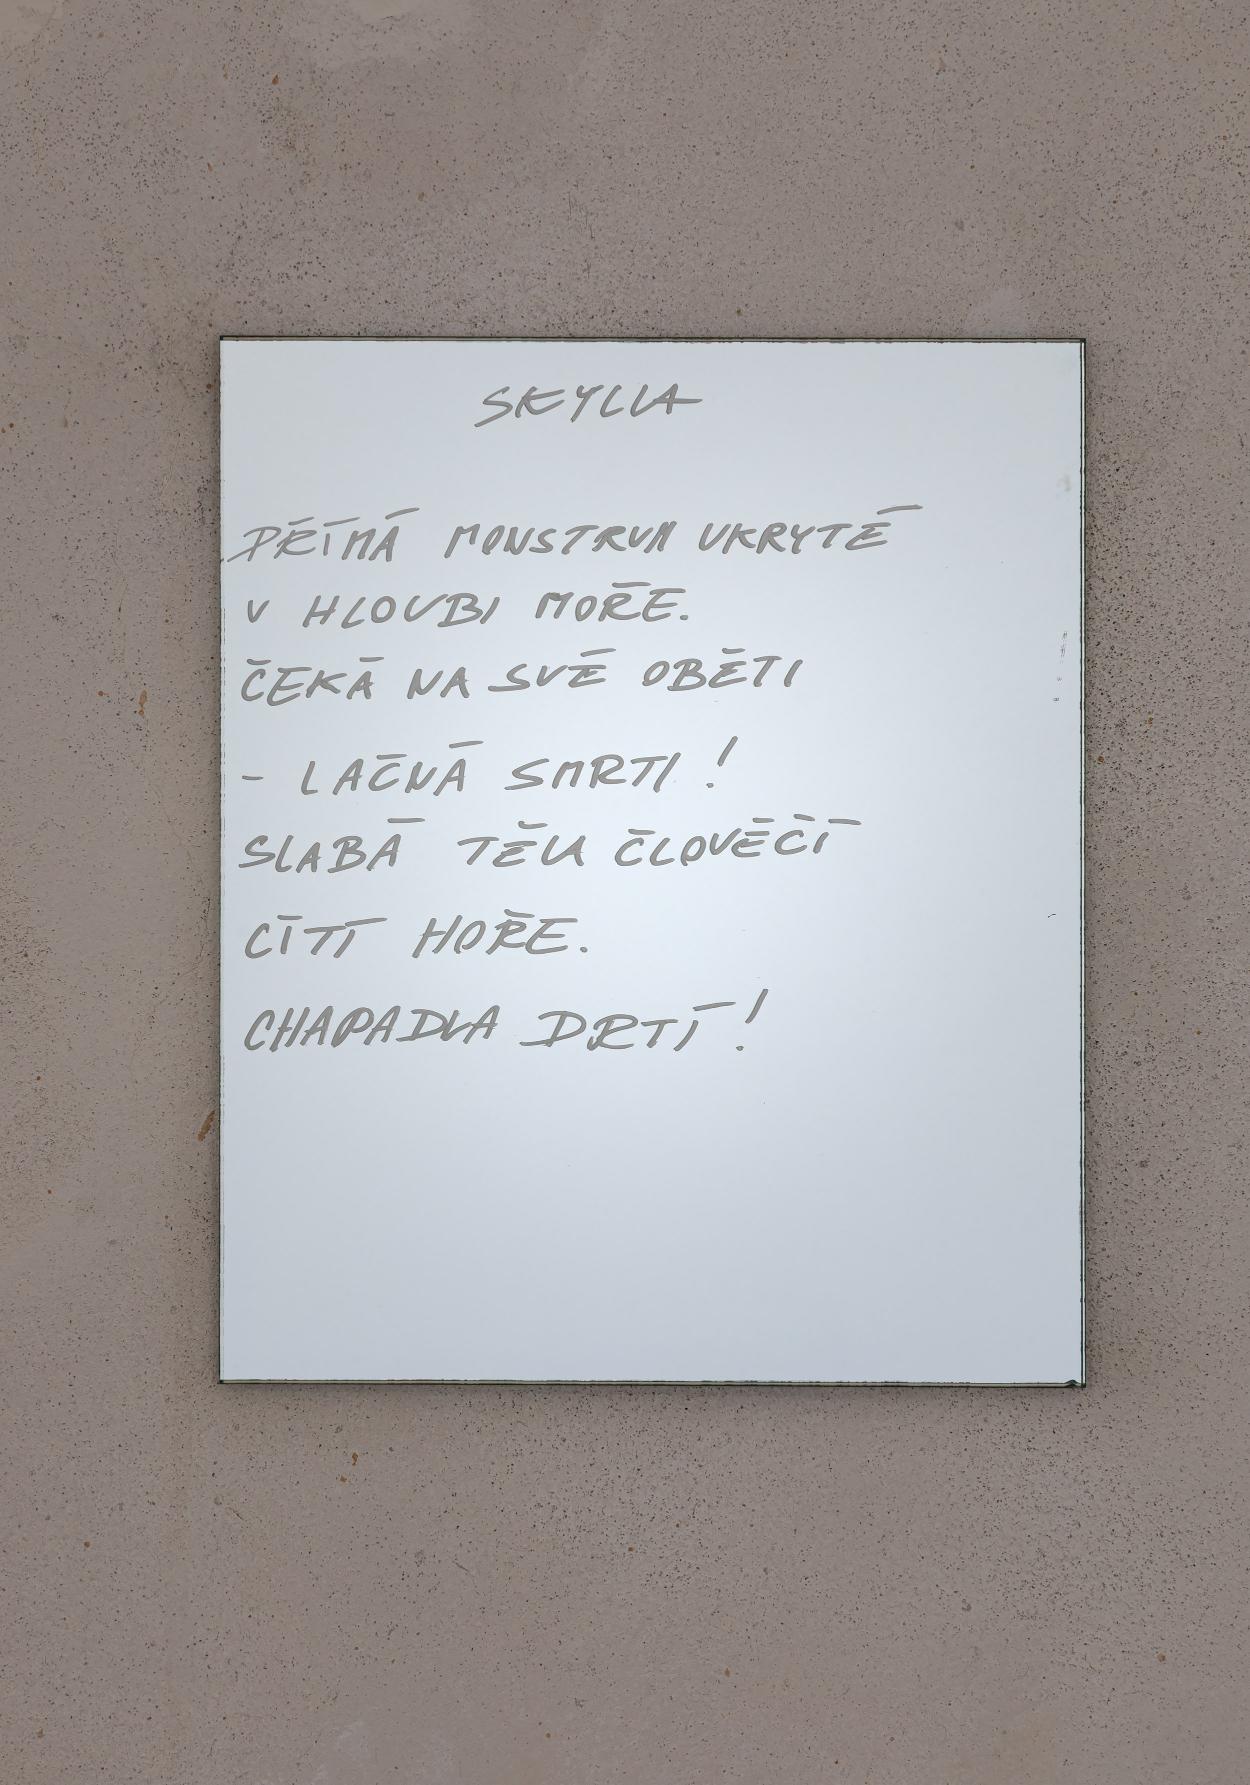 SKYLLA
DŘÍMÁ MONSTRUM UKRYTÉ
V HLOUBI MOŘE.
ČEKÁ NA SVÉ OBĚTI
- LAČNÁ SMRTI!
SLABÁ TĚLA ČLOVĚČÍ
CÍTÍ HOŘE.
CHAPADLA DRTÍ!